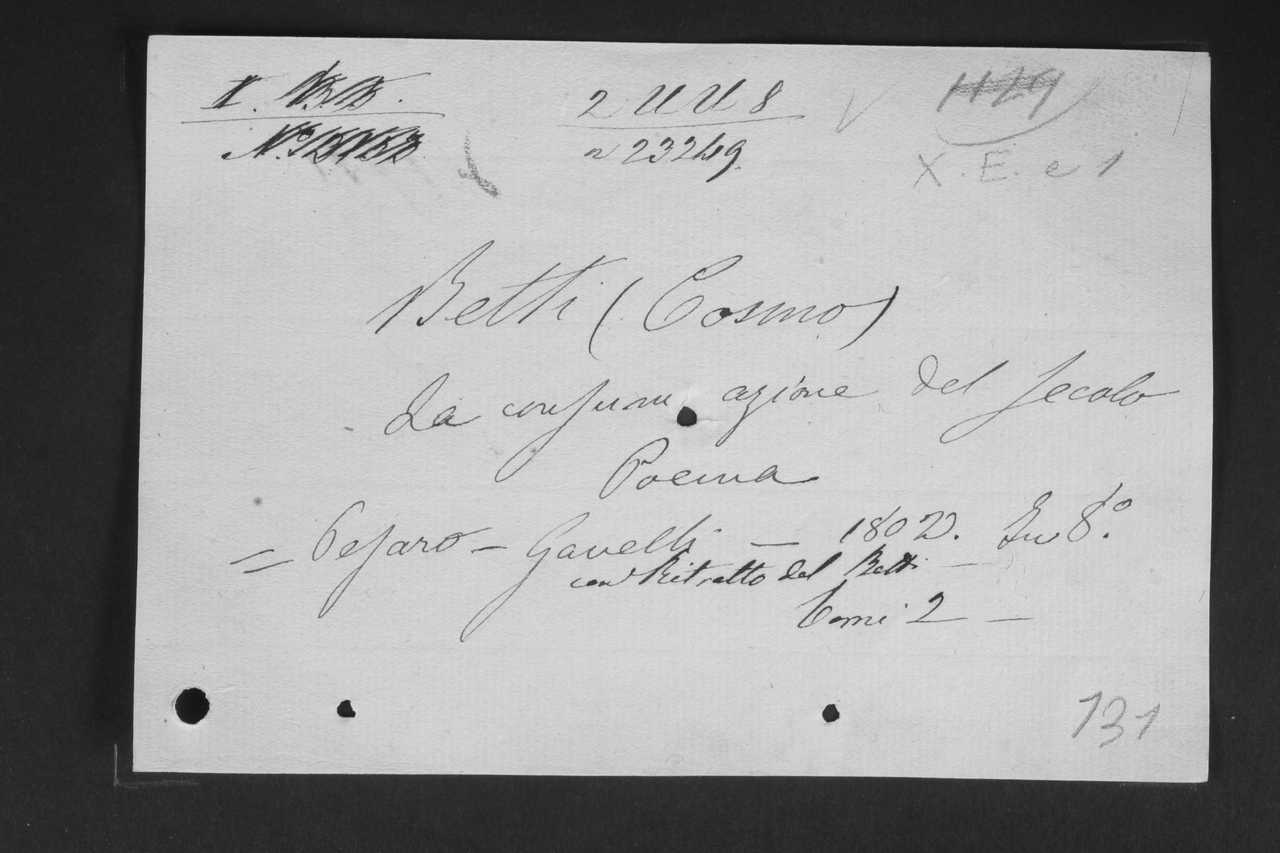 2 U U 8
1129
n 23249
X. E. e 1
Betti (Cosmo)
La consumazione del secolo
Poema
= Pesaro - Gavelli - 1802. In 8.º
con Ritratto del Betti -
Tomi 2 -
131